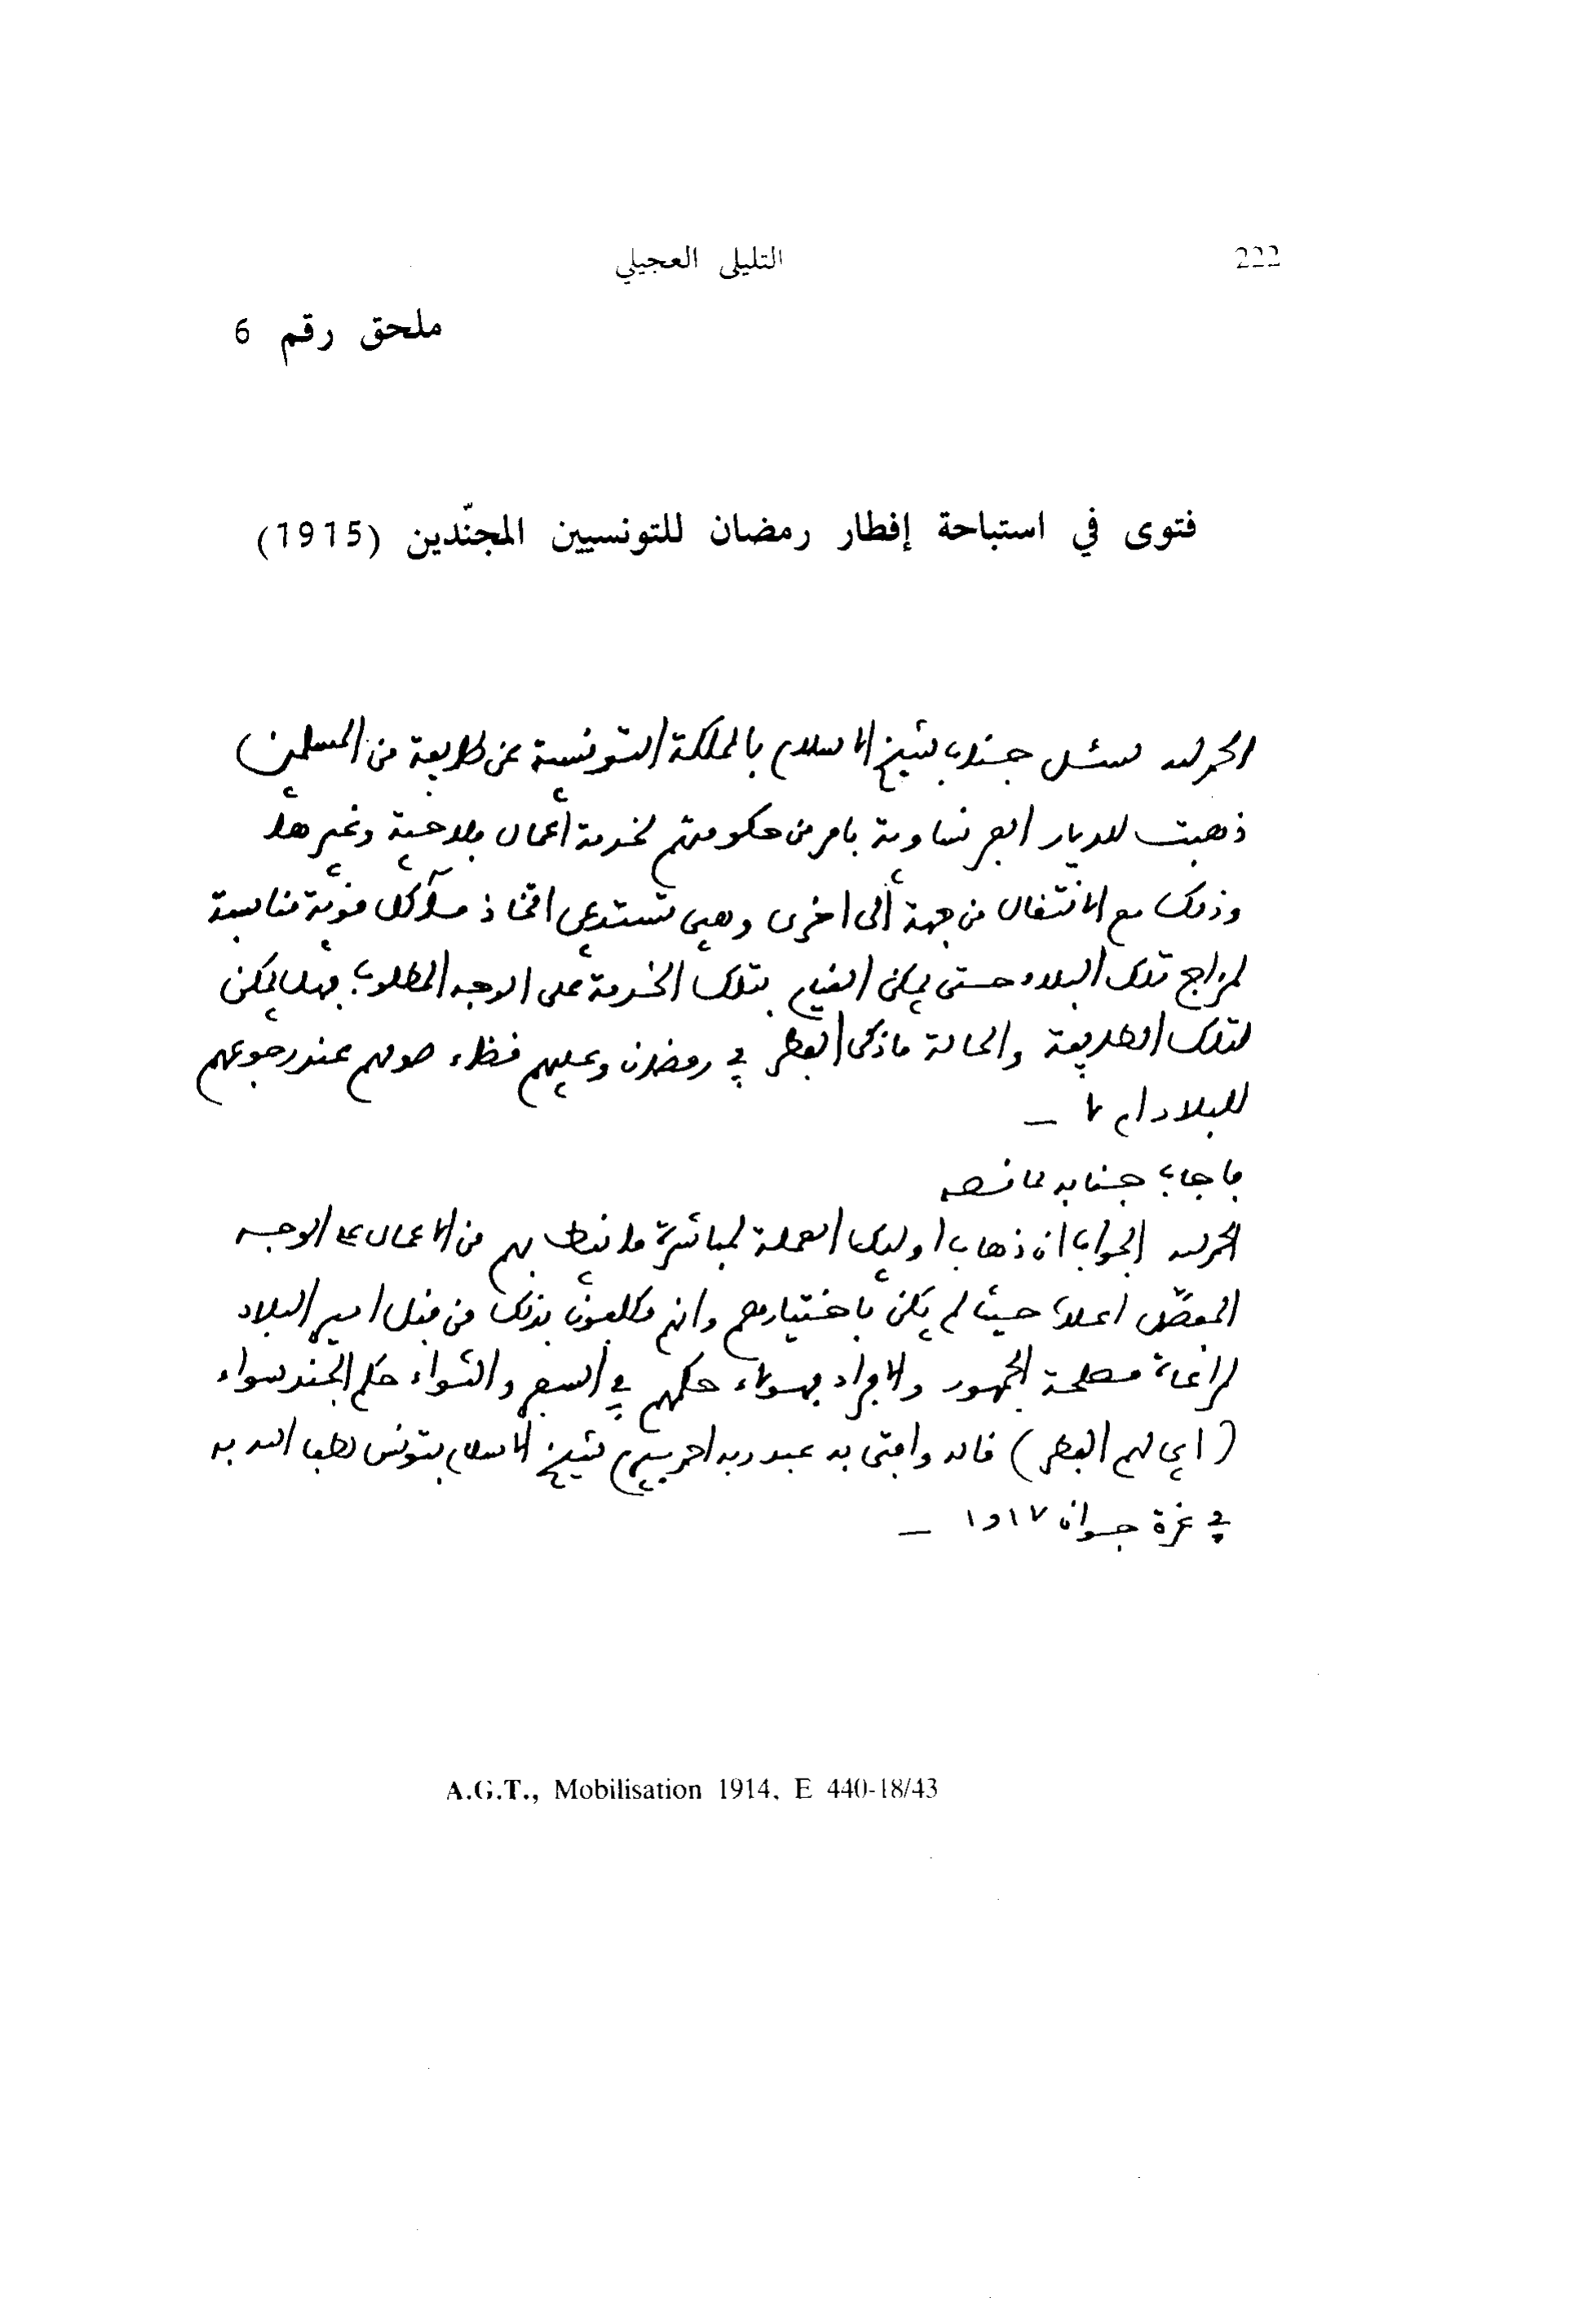 222 التليلي العجيلي
ملحق رقم 6
فتوى في استباحة إفطار رمضان للتونسيين المجنّدين (1915)
الحمد لله سئل جناب شيخ الاسلام بالمملكة التونسية عن طايفة من المسلمين
ذهبت للديار الفرنساوية بامر من حكومتهم لخدمة أعمال فلاحية وغيرها
وذلك مع الانتقال من جهة ألى اخرى وهي تستدعي اتخاذ مآكل قوية مناسبة
لمزاج تلك البلاد حتى يمكن القيام بتلك الخدمة على الوجه المطلوب فهل يمكن
لتلك الطايفة والحالة ماذكر الفطر في رمضان وعليهم قضاء صومهم عند رجوعهم
للبلاد ام لا –
فاجاب جنابه بما نصه
الحمد لله الجواب ان ذهاب اوليك العملة لمباشرة ما نيط بهم من الاعمال على الوجه
المفصّل اعلاه حيث لم يكن باختيارهم وانهم مكلفون بذلك من قبل امير البلاد
لمراعاة مصلحة الجمهور والافراد فهولاء حكمهم في السفر والثواء حكم الجند سواء
(اي لهم الفطر) قاله وافتى به عبد ربه احمد بيرم شيخ الاسلام بتونس لطف الله به
في غرة جوان ١٩١٧ –
A.G.T., Mobilisation 1914, E 440-18/43